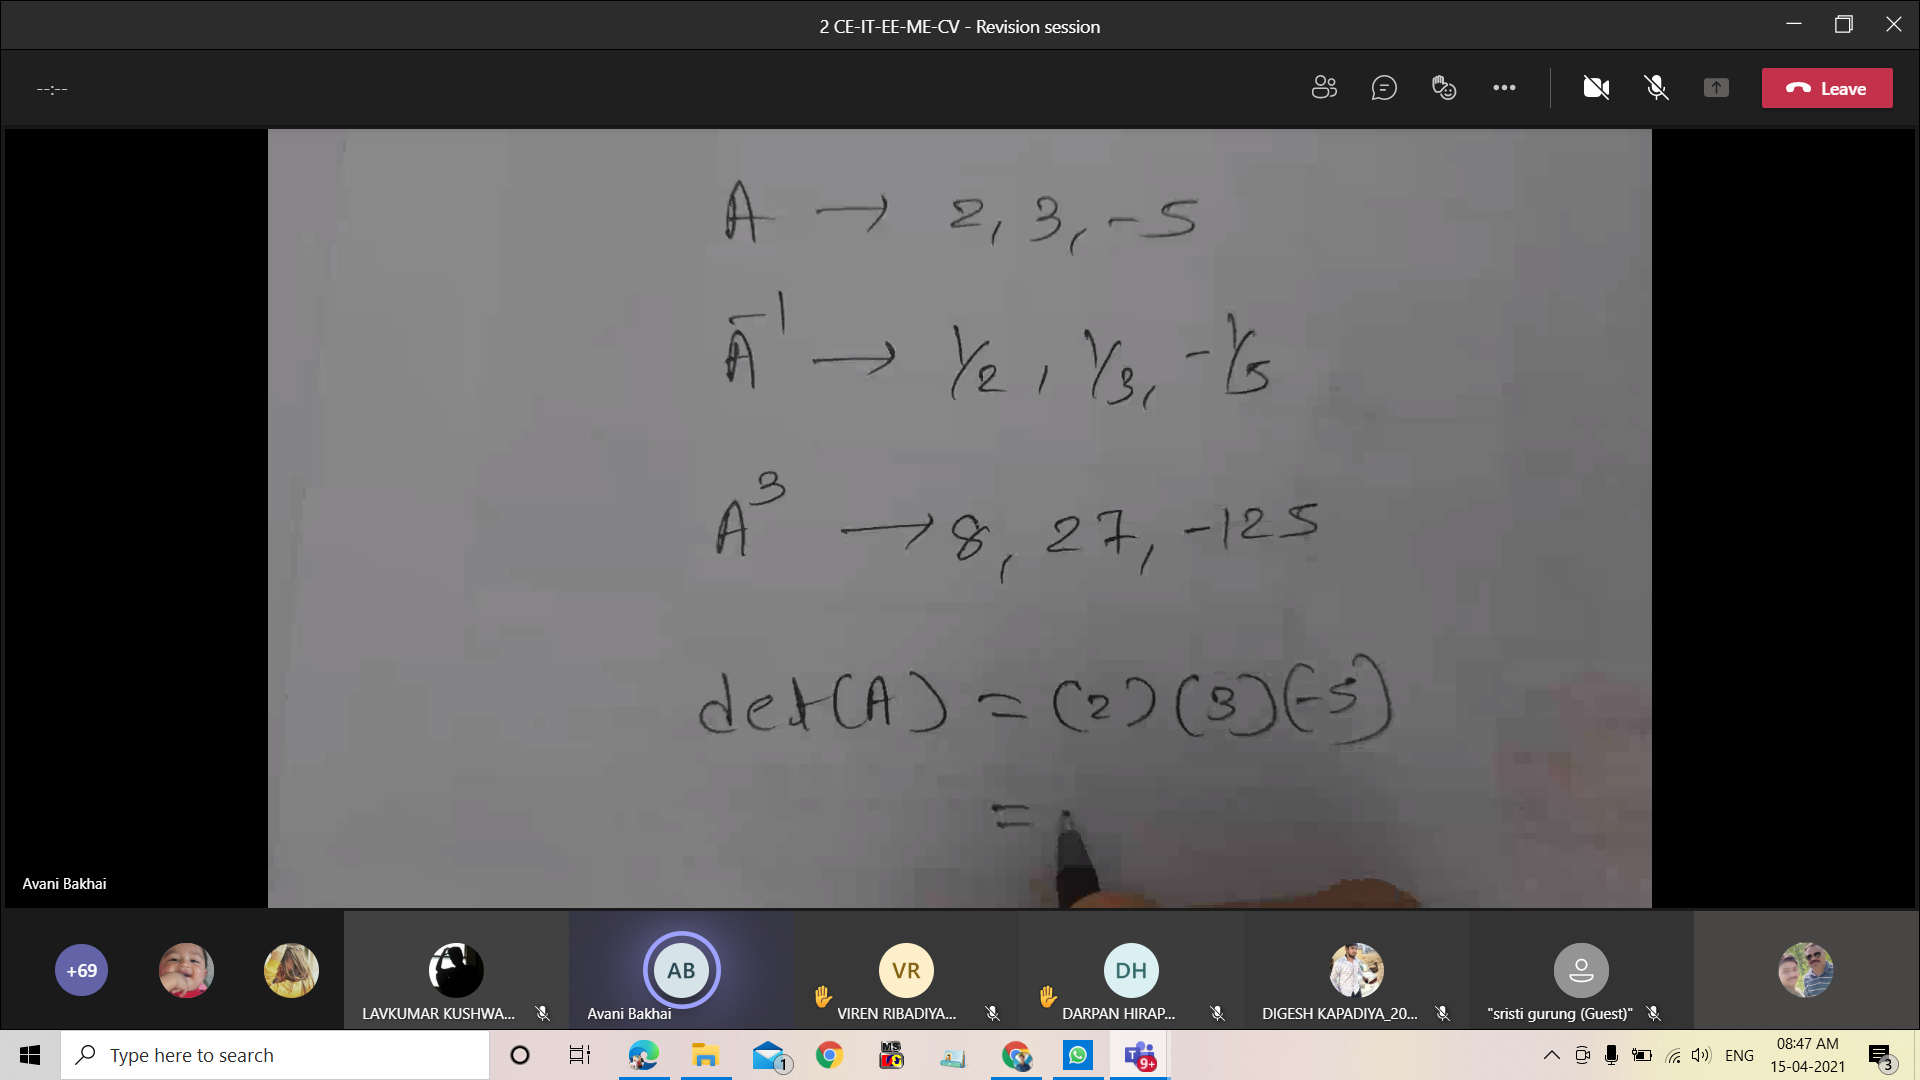 2 CE-IT-EE-ME-CV - Revision session
--:--
Leave
A → 2, 3, -5
A⁻¹ → 1/2, 1/3, -1/5
A³ → 8, 27, -125
det(A) = (2)(3)(-5)
=
Avani Bakhai
+69
LAVKUMAR KUSHWA...
AB
Avani Bakhai
VR
VIREN RIBADIYA...
DH
DARPAN HIRAP...
DIGESH KAPADIYA_20...
"sristi gurung (Guest)"
Type here to search
1
MS
9+
ENG
08:47 AM
15-04-2021
3